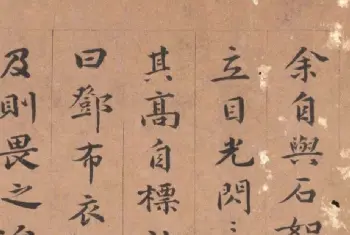 余自與石如
立目光閃〻
其高自標
曰鄧布衣
及則畏之